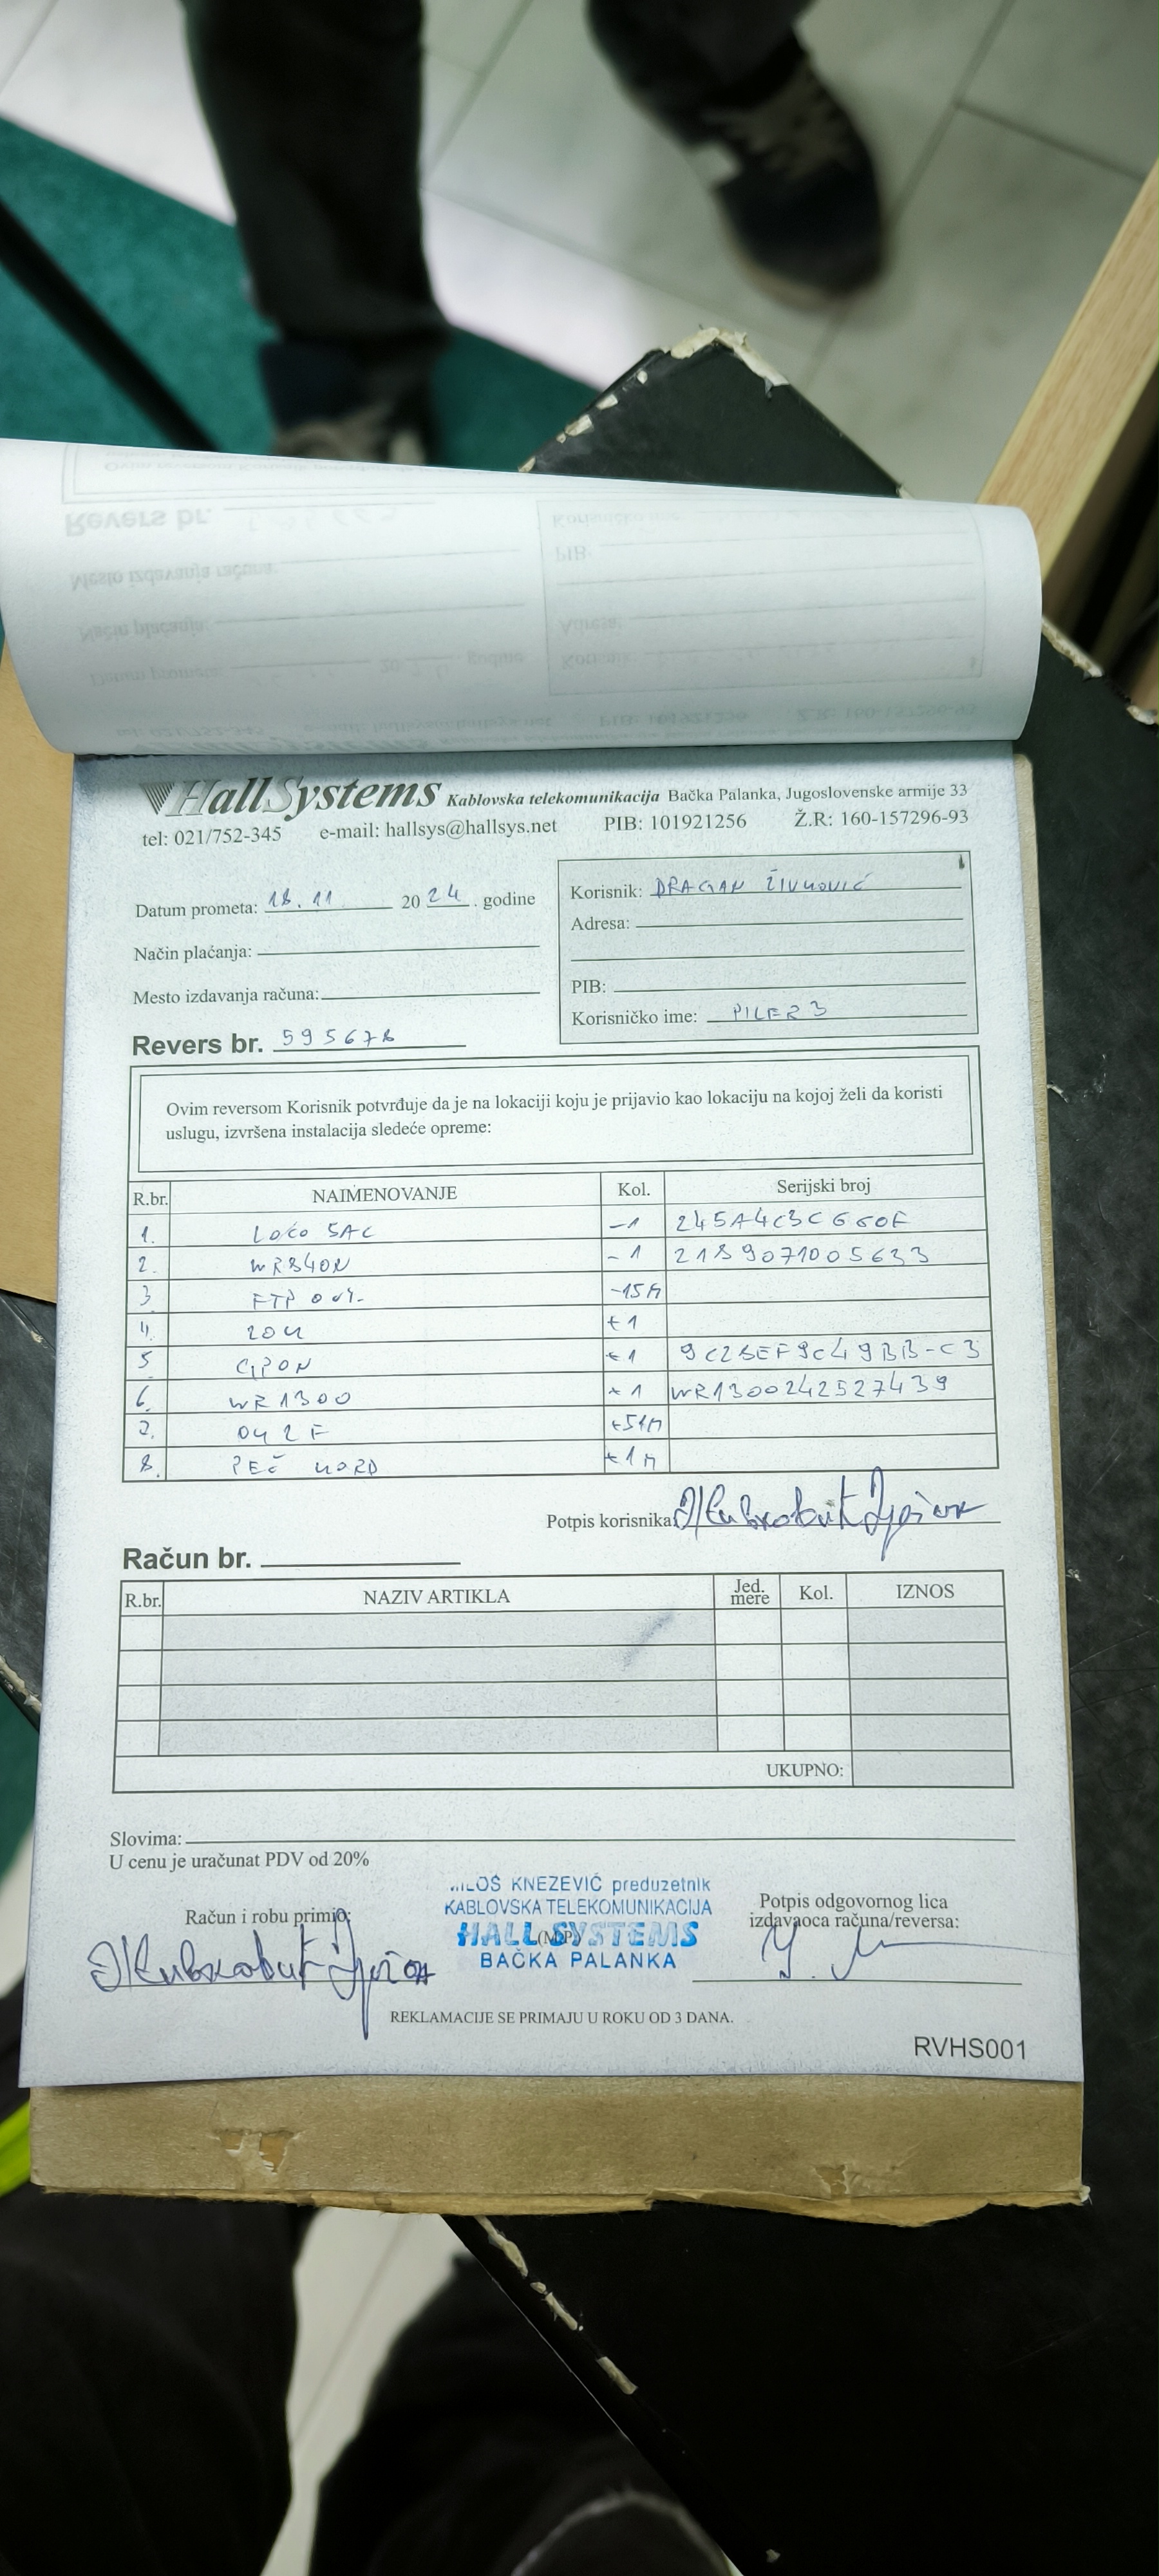 HallSystems Kablovska telekomunikacija Bačka Palanka, Jugoslovenske armije 33
tel: 021/752-345 e-mail: hallsys@hallsys.net PIB: 101921256 Ž.R: 160-157296-93
Datum prometa: 18.11 20 24 . godine
Način plaćanja:
Mesto izdavanja računa:
Revers br. 595678
Korisnik: DRAGAN ŽIVKOVIĆ
Adresa:
PIB:
Korisničko ime: PILER3
Ovim reversom Korisnik potvrđuje da je na lokaciji koju je prijavio kao lokaciju na kojoj želi da koristi
uslugu, izvršena instalacija sledeće opreme:
R.br. NAIMENOVANJE Kol. Serijski broj
1. LOCO 5AC -1 245A4C3C660F
2. WR840N -1 2189071005633
3 FTP -15M
4. ZOK +1
5 GPON +1 9C28EF9C49BB-C3
6. WR1300 +1 WR1300242527439
7. 04 2F +51M
8. PEČ KORD +1M
Potpis korisnika:
Račun br.
R.br. NAZIV ARTIKLA Jed. mere Kol. IZNOS
UKUPNO:
Slovima:
U cenu je uračunat PDV od 20%
Račun i robu primio:
MILOŠ KNEZEVIĆ preduzetnik
KABLOVSKA TELEKOMUNIKACIJA
HALL SYSTEMS
(M.P.)
BAČKA PALANKA
Potpis odgovornog lica
izdavaoca računa/reversa:
REKLAMACIJE SE PRIMAJU U ROKU OD 3 DANA.
RVHS001